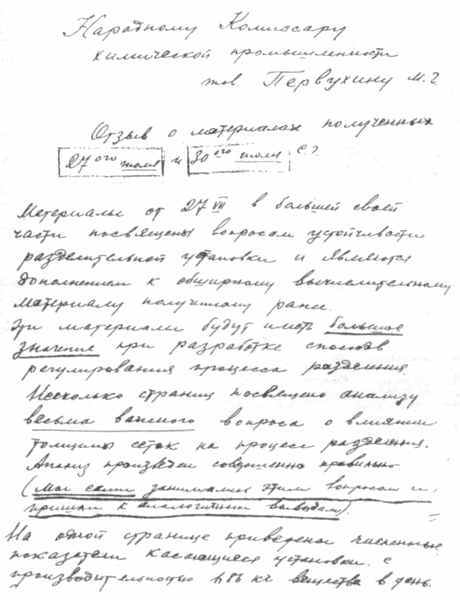 Народному Комиссару
химической промышленности
тов Первухину М.Г
Отзыв о материалах полученных
27ого июля и 30ого июля с?
Материалы от 27 VII в большей своей
части посвящены вопросам устойчивости
разделительной установки и являются
дополнением к обширному вычислительному
материалу полученному ранее.
Эти материалы будут иметь большое
значение при разработке способов
регулирования процесса разделения
Несколько страниц посвящено анализу
весьма важного вопроса о влиянии
толщины сеток на процесс разделения.
Анализ произведен совершенно правильно
(мы сами занимались этим вопросом и
пришли к аналогичным выводам).
На одной странице приведены численные
показатели касающиеся установки с
производительностью кг вещества в день.